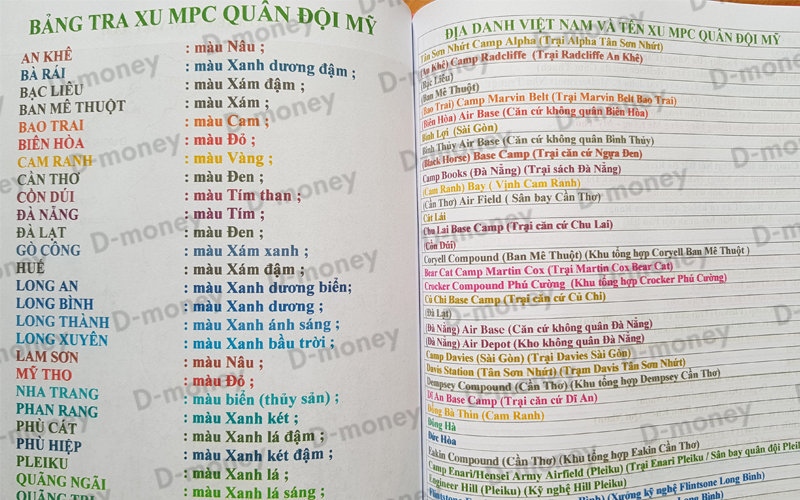 BẢNG TRA XU MPC QUÂN ĐỘI MỸ
AN KHÊ : màu Nâu ;
BÀ RÁI : màu Xanh dương đậm ;
BẠC LIÊU : màu Xám đậm ;
BAN MÊ THUỘT : màu Xám ;
BAO TRAI : màu Cam ;
BIÊN HÒA : màu Đỏ ;
CAM RANH : màu Vàng ;
CẦN THƠ : màu Đen ;
CÒN DÚI : màu Tím than ;
ĐÀ NẴNG : màu Tím ;
ĐÀ LẠT : màu Đen ;
GÒ CÔNG : màu Xám xanh ;
HUẾ : màu Xám đậm ;
LONG AN : màu Xanh dương biển;
LONG BÌNH : màu Xanh dương ;
LONG THÀNH : màu Xanh ánh sáng ;
LONG XUYÊN : màu Xanh bầu trời ;
LAM SƠN : màu Nâu ;
MỸ THO : màu Đỏ ;
NHA TRANG : màu biển (thủy sản) ;
PHAN RANG : màu Xanh két ;
PHÙ CÁT : màu Xanh lá đậm ;
PHÙ HIỆP : màu Xanh két đậm ;
PLEIKU : màu Xanh lá ;
QUÃNG NGÃI : màu Xanh lá sáng ;
QUÃNG TRỊ
ĐỊA DANH VIỆT NAM VÀ TÊN XU MPC QUÂN ĐỘI MỸ
Tân Sơn Nhứt Camp Alpha (Trại Alpha Tân Sơn Nhứt)
(An Khê) Camp Radcliffe (Trại Radcliffe An Khê)
(Bạc Liêu)
(Ban Mê Thuột)
(Bao Trai) Camp Marvin Belt (Trại Marvin Belt Bao Trai)
(Biên Hòa) Air Base (Căn cứ không quân Biên Hòa)
Bình Lợi (Sài Gòn)
Bình Thủy Air Base (Căn cứ không quân Bình Thủy)
(Black Horse) Base Camp (Trại căn cứ Ngựa Đen)
Camp Books (Đà Nẵng) (Trại sách Đà Nẵng)
(Cam Ranh) Bay ( Vịnh Cam Ranh)
(Cần Thơ) Air Field ( Sân bay Cần Thơ)
Cát Lái
Chu Lai Base Camp (Trại căn cứ Chu Lai)
(Còn Dúi)
Coryell Compound (Ban Mê Thuột) (Khu tổng hợp Coryell Ban Mê Thuột )
Bear Cat Camp Martin Cox (Trại Martin Cox Bear Cat)
Crocker Compound Phú Cường (Khu tổng hợp Crocker Phú Cường)
Củ Chi Base Camp (Trại căn cứ Củ Chi)
(Đà Lạt)
(Đà Nẵng) Air Base (Căn cứ không quân Đà Nẵng)
(Đà Nẵng) Air Depot (Kho không quân Đà Nẵng)
Camp Davies (Sài Gòn) (Trại Davies Sài Gòn)
Davis Station (Tân Sơn Nhứt) (Trạm Davis Tân Sơn Nhứt)
Dempsey Compound (Cần Thơ) (Khu tổng hợp Dempsey Cần Thơ)
Dĩ An Base Camp (Trại căn cứ Dĩ An)
Đồng Bà Thìn (Cam Ranh)
Đông Hà
Đức Hòa
Eakin Compound (Cần Thơ) (Khu tổng hợp Eakin Cần Thơ)
Camp Enari/Hensei Army Airfield (Pleiku) (Trại Enari Pleiku / Sân bay quân đội
Engineer Hill (Pleiku) (Kỹ nghệ Hill Pleiku)
(Xưởng kỹ nghệ Flintsone Long Bình)
D-money